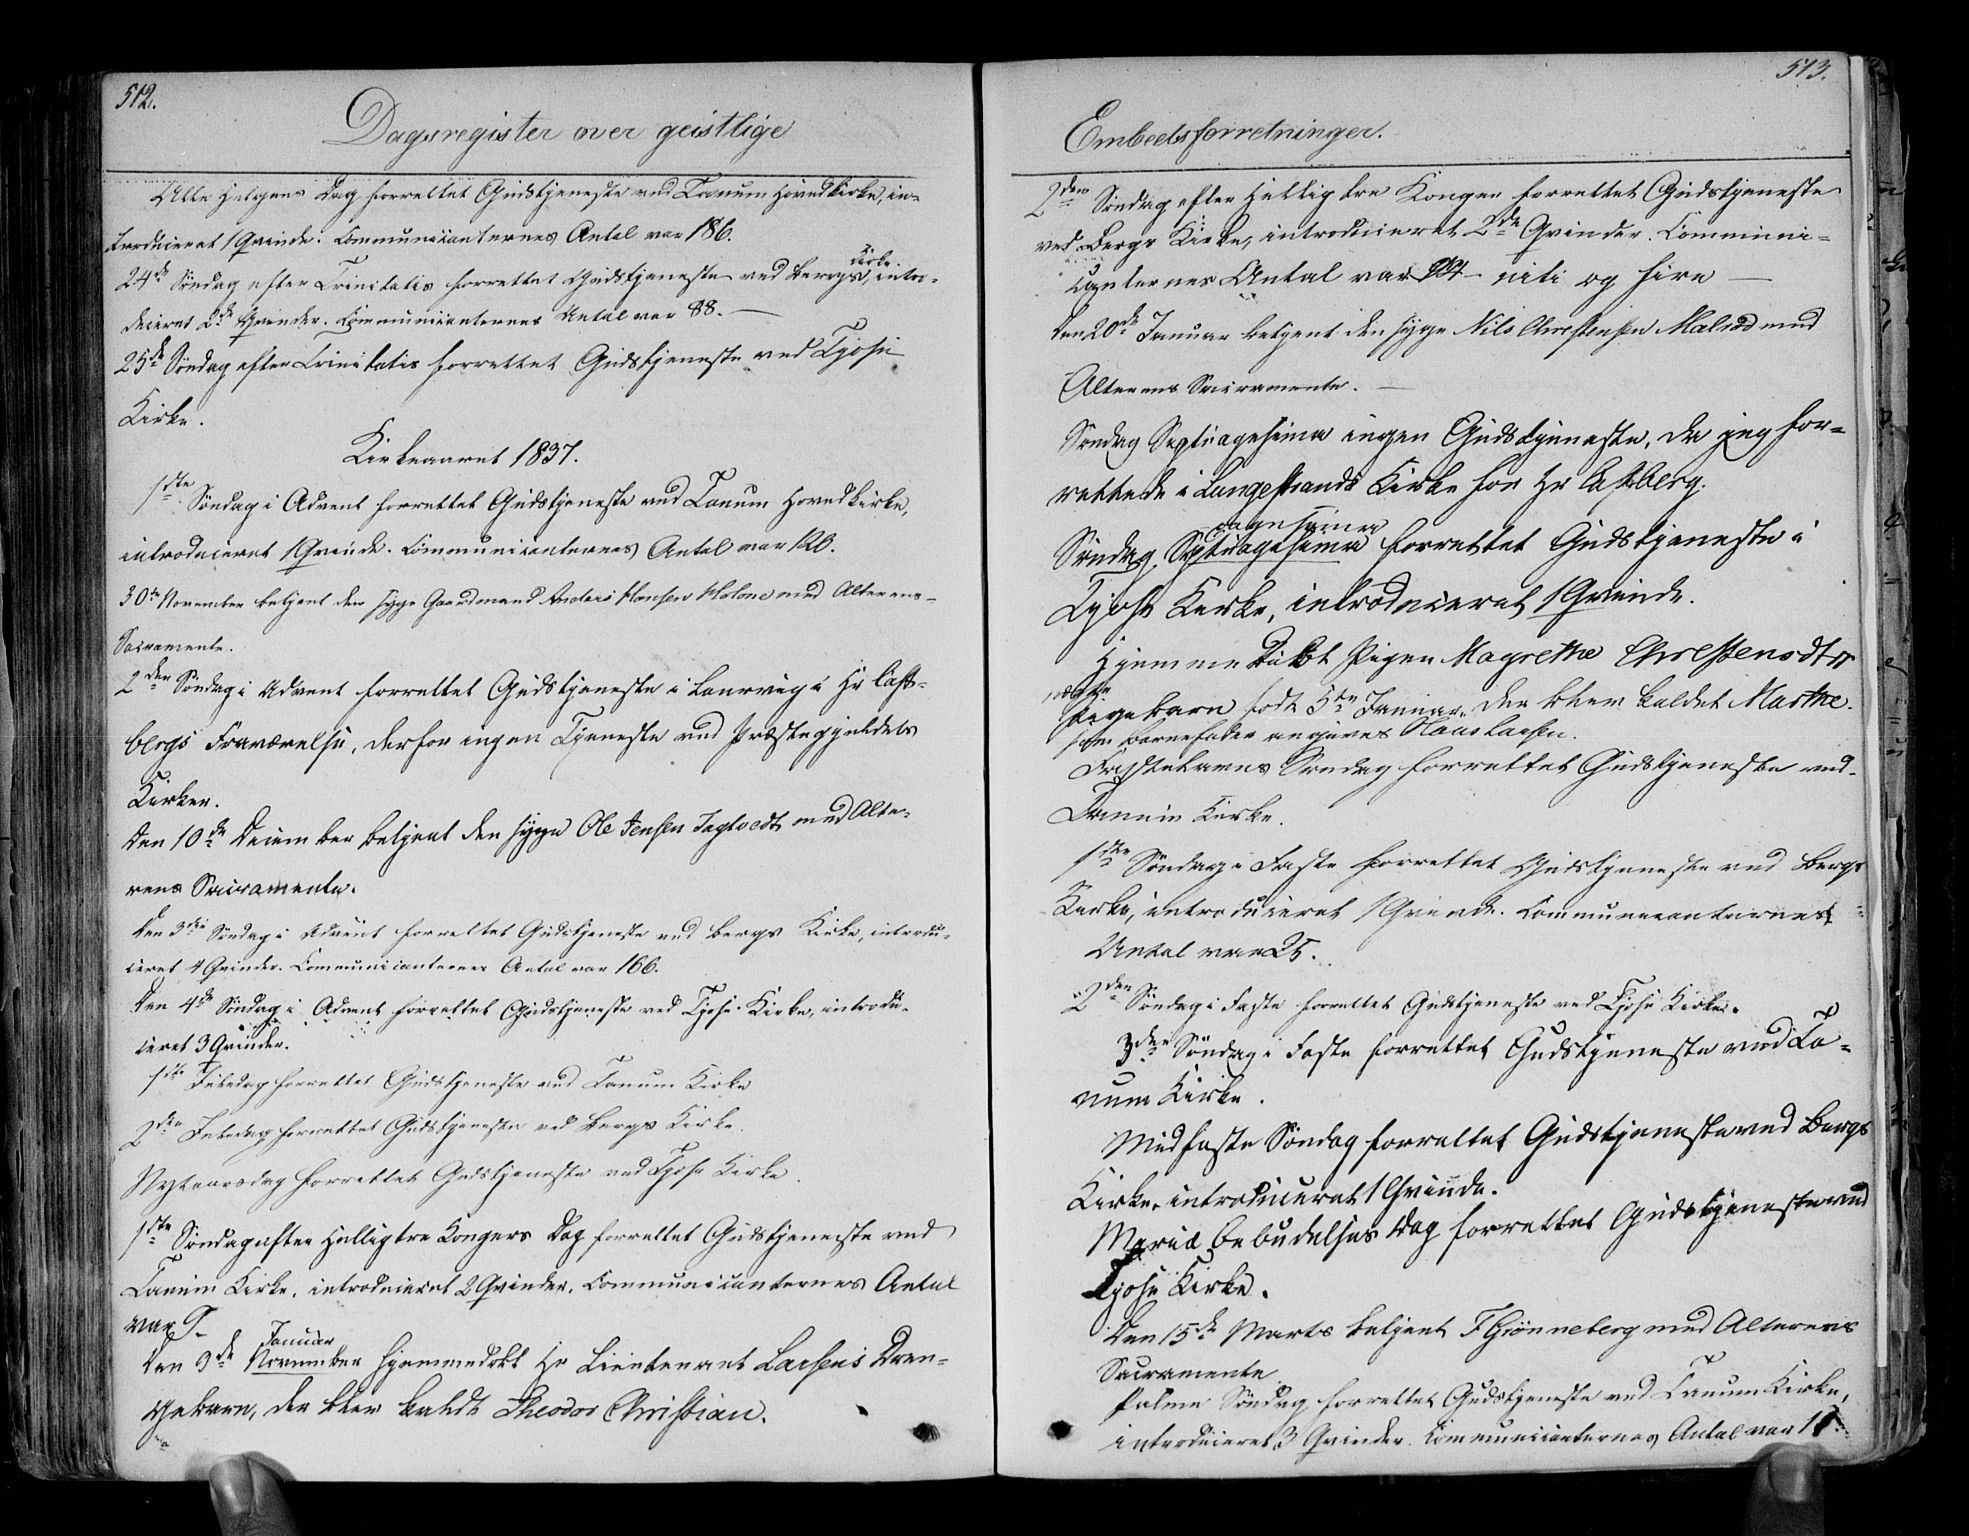 512.
Dagsregister over geistlige
Alle Helgens Dag forrettet Gudstjeneste ved Tanum Hovedkirke, in-
troduceret 1 Qvinde. Communicanternes Antal var 186.
Kirke
24de Søndag efter Trinitatis forrettet Gudstjeneste ved Bergs, intro-
duceret 2de Qvinder. Communicanternes Antal var 88. —
25de Søndag efter Trinitatis forrettet Gudstjeneste ved Tjose
Kirke.
Kirkeaaret 1837.
1ste Søndag i Advent forrettet Gudstjeneste ved Tanum Hovedkirke,
introduceret 1 Qvinde. Communicanternes Antal var 120.
30te November betjent den syge Gaardmand Anders Hansen Holone med Alterens
Sacramente.
2den Søndag i Advent forrettet Gudstjeneste i Laurvig i Hr Cast-
bergs Fraværelse, derfor ingen Tjeneste ved Præstegjeldets
Kirker.
Den 10de December betjent den syge Ole Jensen Jagtvedt med Alte-
rens Sacramente.
Den 3die Søndag i Advent forrettet Gudstjeneste ved Bergs Kirke, introdu-
ceret 4 Qvinder. Communicanternes Antal var 166.
Den 4de Søndag i Advent forrettet Gudstjeneste ved Tjose Kirke, introdu-
ceret 3 Qvinder.
1ste Juledag forrettet Gudstjeneste ved Tanum Kirke
2den Juledag forrettet Gudstjeneste ved Bergs Kirke.
Nytaarsdag forrettet Gudstjeneste ved Tjose Kirke.
1ste Søndag efter Hellig tre Kongers Dag forrettet Gudstjeneste ved
Tanum Kirke, introduceret 2 Qvinder, Communicanternes Antal
var 9.
Januar
Den 9de November hjemmedøbt Hr Lieutenant Larsens Dren-
gebarn, der blev kaldt Theodor Christian.
513.
Embedsforretninger.
2den Søndag efter Hellig tre Konger forrettet Gudstjeneste
ved Bergs Kirke, introduceret 2de Qvinder. Communi-
canternes Antal var 94 niti og fire —
Den 20de Januar betjent den syge Nils Christensen Malerød med
Alterens Sacramente. —
Søndag Septuagesima ingen Gudstjeneste, da jeg for-
rettede i Langestrands Kirke for Hr Castberg.
agesima
Søndag Septuagesima forrettet Gudstjeneste i
Tjose Kirke, introduceret 1 Qvinde.
Hjemmedøbt Pigen Magrethe Christensdtr
uægte
Pigebarn født 5te Januar, der blev kaldet Marthe.
som Barnefader angives Claus Larsen.
Fastelavns Søndag forrettet Gudstjeneste ved
Tanum Kirke.
1ste Søndag i Faste forrettet Gudstjeneste ved Bergs
Kirke, introduceret 1 Qvinde. Communicanternes
Antal var 25.
2den Søndag i Faste forrettet Gudstjeneste ved Tjose Kirke.
3den Søndag i Faste forrettet Gudstjeneste ved Ta-
num Kirke.
Midfaste Søndag forrettet Gudstjeneste ved Bergs
Kirke, introduceret 1 Qvinde.
Mariæ Bebudelses Dag forrettet Gudstjeneste ved
Tjose Kirke.
Den 15de Marts betjent F Grønneberg med Alterens
Sacramente
Palme Søndag forrettet Gudstjeneste ved Tanum Kirke,
introduceret 3 Qvinder. Communicanternes Antal var